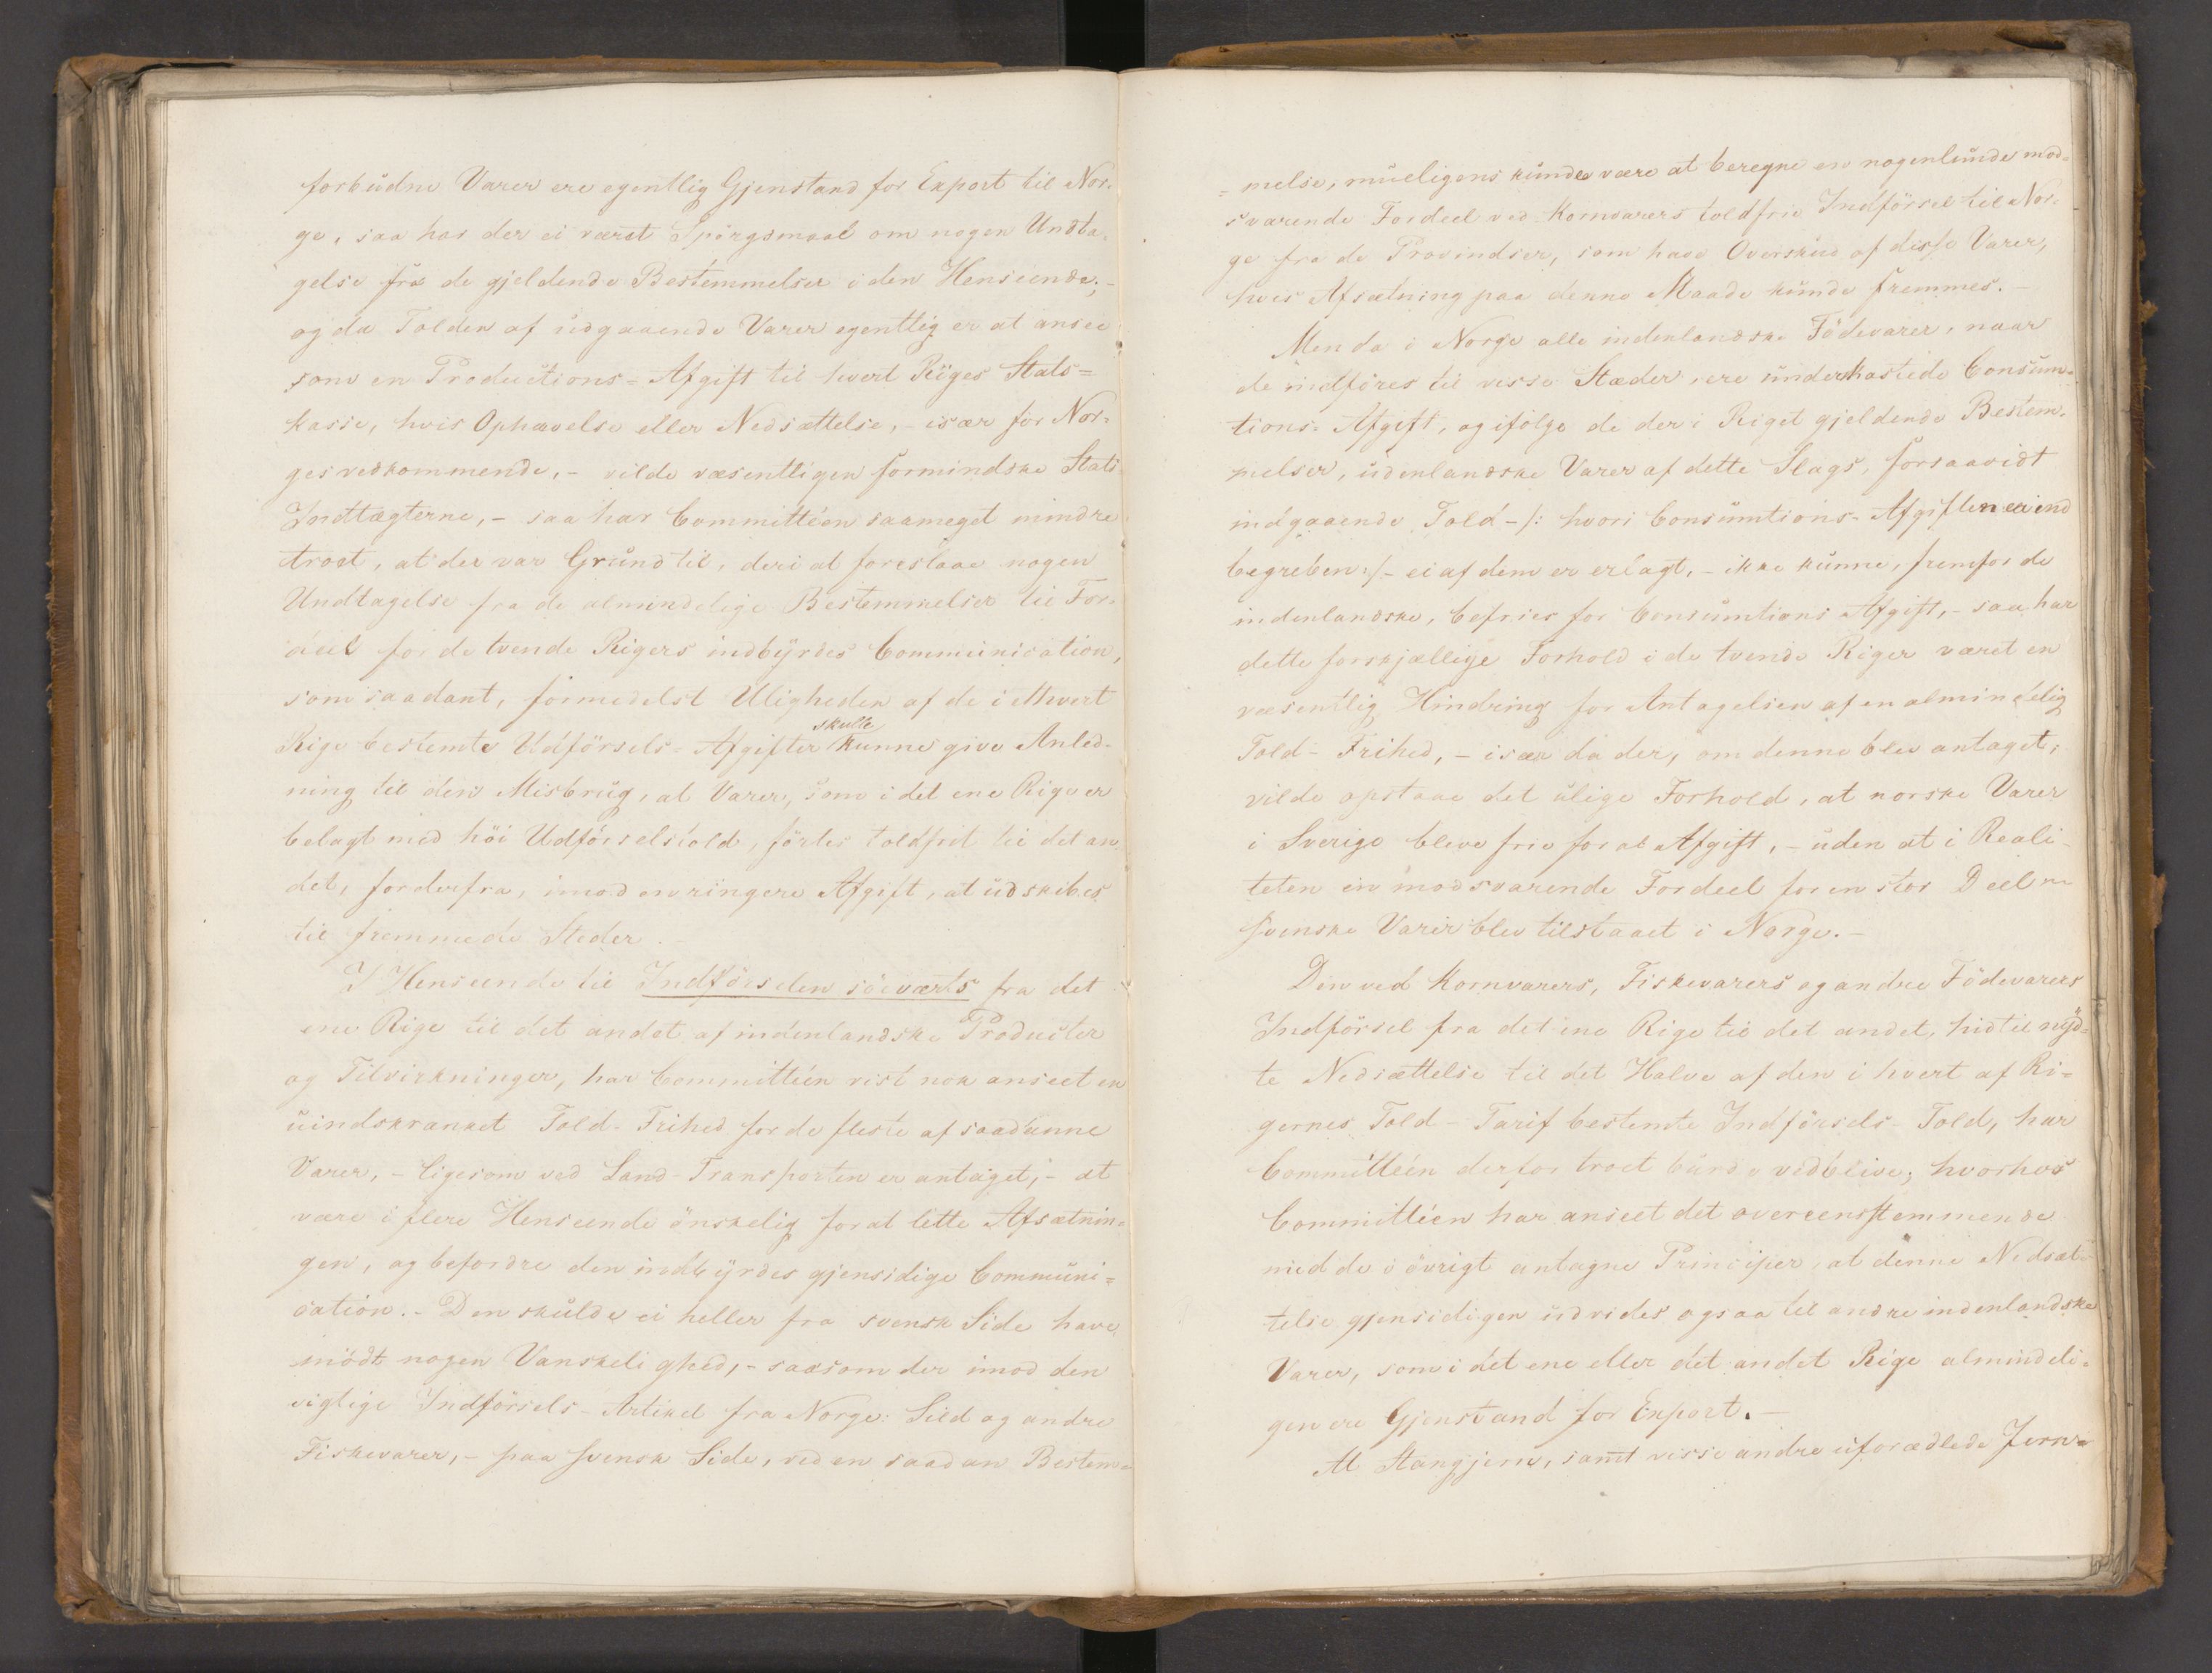 forbudne Varer ere egentlig Gjenstand for Export til Nor-
ge, saa har der ei været Spörgsmaal om nogen Undta-
gelse fra de gjeldende Bestemmelser i den Henseende; -
og da Tolden af udgaaende Varer egentlig er at ansee
som en Productions=Afgift til hvert Riges Stats=
kasse, hvis Ophævelse eller Nedsættelse, - især for Nor=
ges vedkommende, - vilde væsentligen formindske Stats
Indtægterne, - saa har Committéen saameget mindre
troet, at der var Grund til, deri at foreslaae nogen
Undtagelse fra de almindelige Bestemmelser til For-
deel for de tvende Rigers indbyrdes Communication,
som saadant, formedelst Uligheden af de i ethvert
skulle
Rige bestemte Udförsels=Afgifter kunne give Anled-
ning til den Misbrug, at Varer, som i det ene Rige er
belagt med höi Udförselstold, förtes toldfrit til det an-
det, for derfra, imod en ringere Afgift, at udskibes
til fremmede Steder.
I Henseende til Indförselen söeværts fra det
ene Rige til det andet af indenlandske Producter
og Tilvirkninger, har Committéen vist nok anseet en
uindskrænket Told-Frihed for de fleste af saadanne
Varer, - ligesom ved Land-Transporten er antaget, - at
være i flere Henseende önskelig for at lette Afsætnin=
gen, og befordre den indbyrdes gjensidige Communi=
cation. - Den skulde ei heller fra svensk Side have
mödt nogen Vanskelighed, - saasom der imod den
vigtige Indförsels-Artikel fra Norge: Sild og andre
Fiskevarer, - paa svensk Side, ved en saadan Bestem=
=melse, mueligens kunde være at beregne en nogenlunde mod=
svarende Fordeel ved Kornvarers toldfrie Indförsel til Nor-
ge fra de Provindser, som have Overskud af disse Varer,
hvis Afsætning paa denne Maade kunde fremmes. -
Men da i Norge alle indenlandske Födevarer, naar
de indföres til visse Stæder, ere underkastede Consum-
tions=Afgift, og ifölge de der i Riget gjeldende Bestem-
melser, udenlandske Varer af dette Slags, forsaavidt
indgaaende Told -/: hvori Consumtions-Afgiften er ind
begreben :/- ei af dem er erlagt, - ikke kunne, fremfor de
indenlandske, befries for Consumtions Afgift, - saa har
dette forskjællige Forhold i de tvende Riger været en
væsentlig Hindring for Antagelsen af en almindelig
Told-Frihed, - især da der, om denne blev antaget,
vilde opstaae det ulige Forhold, at norske Varer
i Sverige bleve frie for al Afgift, - uden at i Reali-
teten en modsvarende Fordeel for en stor Deel
svenske Varer blev tilstaaet i Norge. -
Den ved Kornvarers, Fiskevarers og andre Födevarers
Indförsel fra det ene Rige til det andet, hidtil nyd=
te Nedsættelse til det Halve af den i hvert af Ri=
gernes Told-Tarif bestemte Indförsels-Told, har
Committéen derfor troet burde vedblive; hvorhos
Committéen har anseet det overeensstemmende
med de i övrigt antagne Principer, at denne Nedsæt-
telse gjensidigen udvides ogsaa til andre indenlandske
Varer, som i det ene eller det andet Rige almindeli=
gen ere Gjenstand for Export. -
At Stangjern, samt visse andre uforædlede Jern=